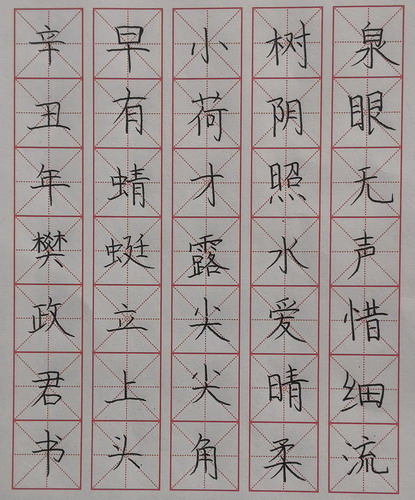 泉眼无声惜细流
树阴照水爱晴柔
小荷才露尖尖角
早有蜻蜓立上头
辛丑年樊政君书